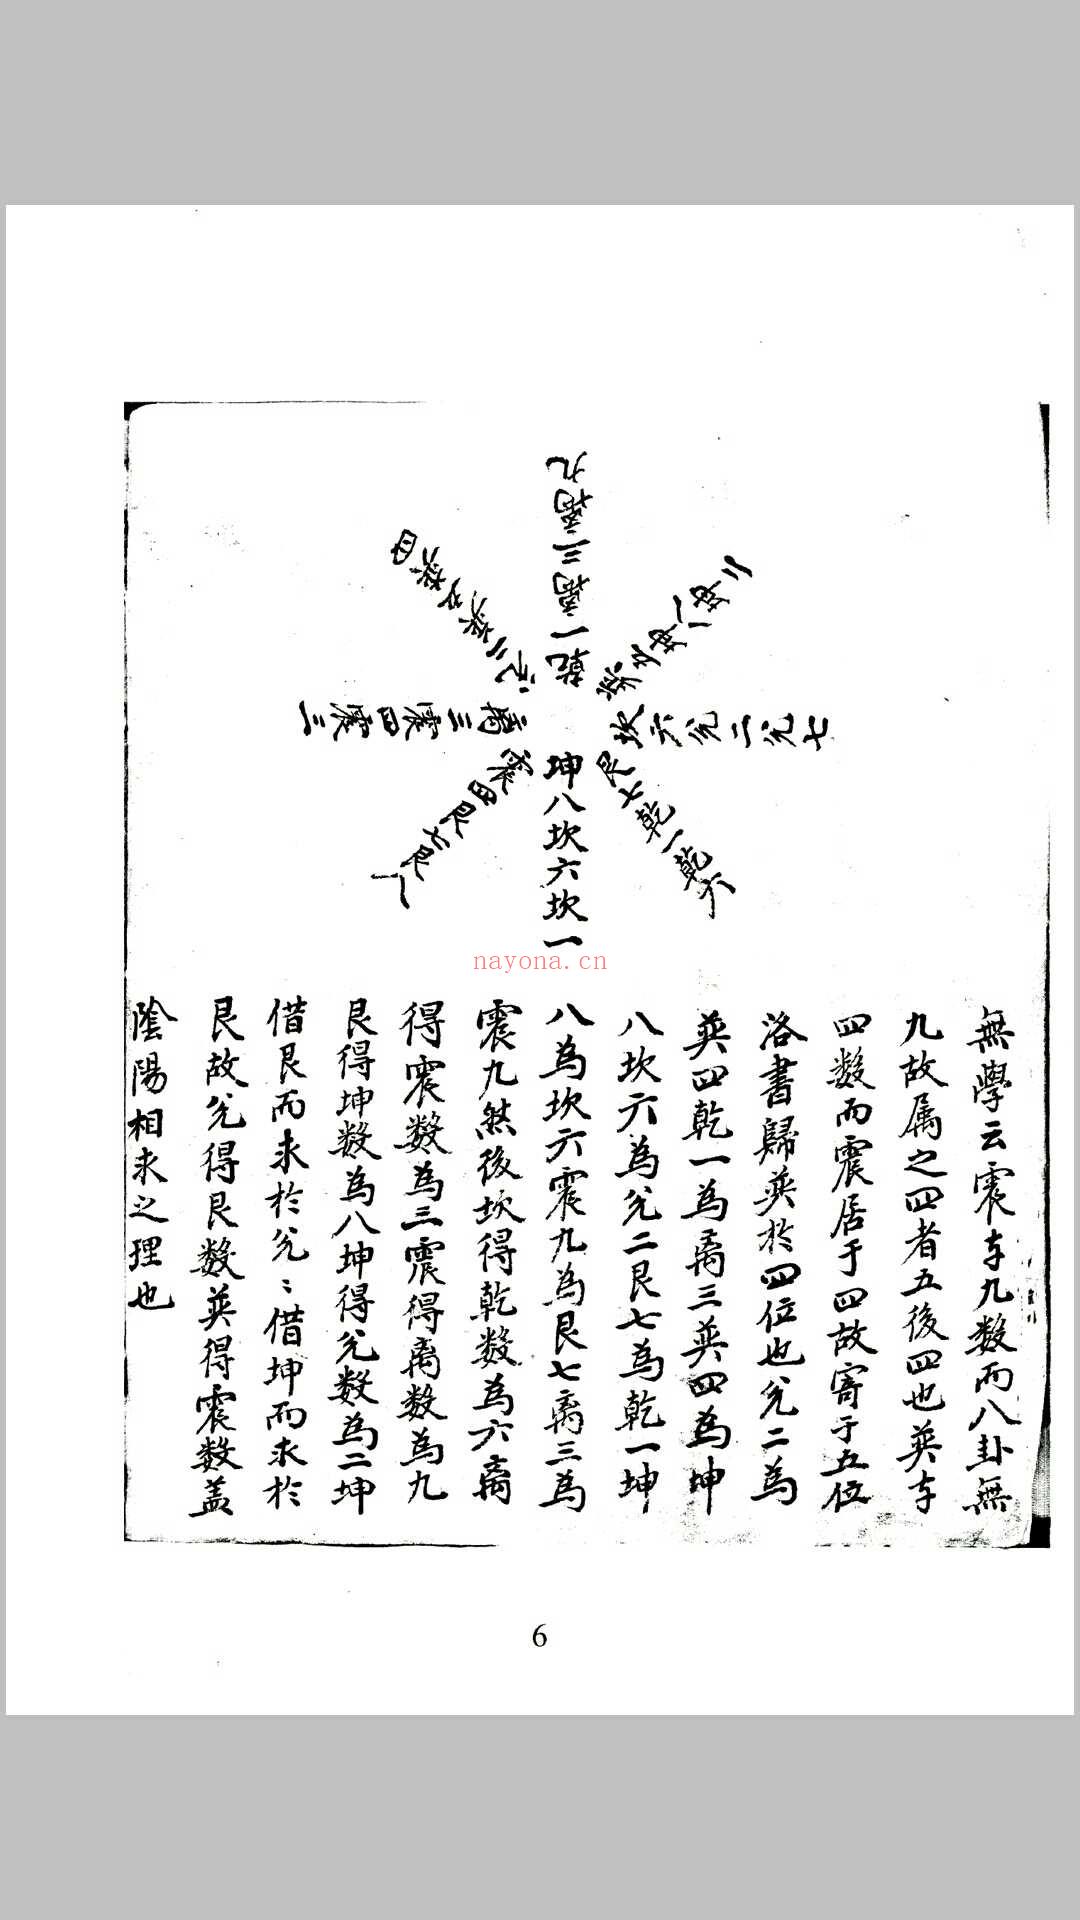 乾一离三离九
巽五坤八坤二
坎六兌二兌七
艮七乾一乾六
坤八坎六坎一
震四艮七艮八
离三震四震三
兌二巽五巽四
無學云震夲九数而八卦無
九故属之四者五後四也巽夲
四数而震居于四故寄于五位
洛書歸巽於四位也兌二為
巽四乾一為离三巽四為坤
八坎六為兌二艮七為乾一坤
八為坎六震九為艮七离三為
震九然後坎得乾数為六离
得震数為三震得离数為九
艮得坤数為八坤得兌数為二坤
借艮而求於兌〻借坤而求於
艮故兌得艮数巽得震数盖
陰陽相求之理也
nayona.cn
6